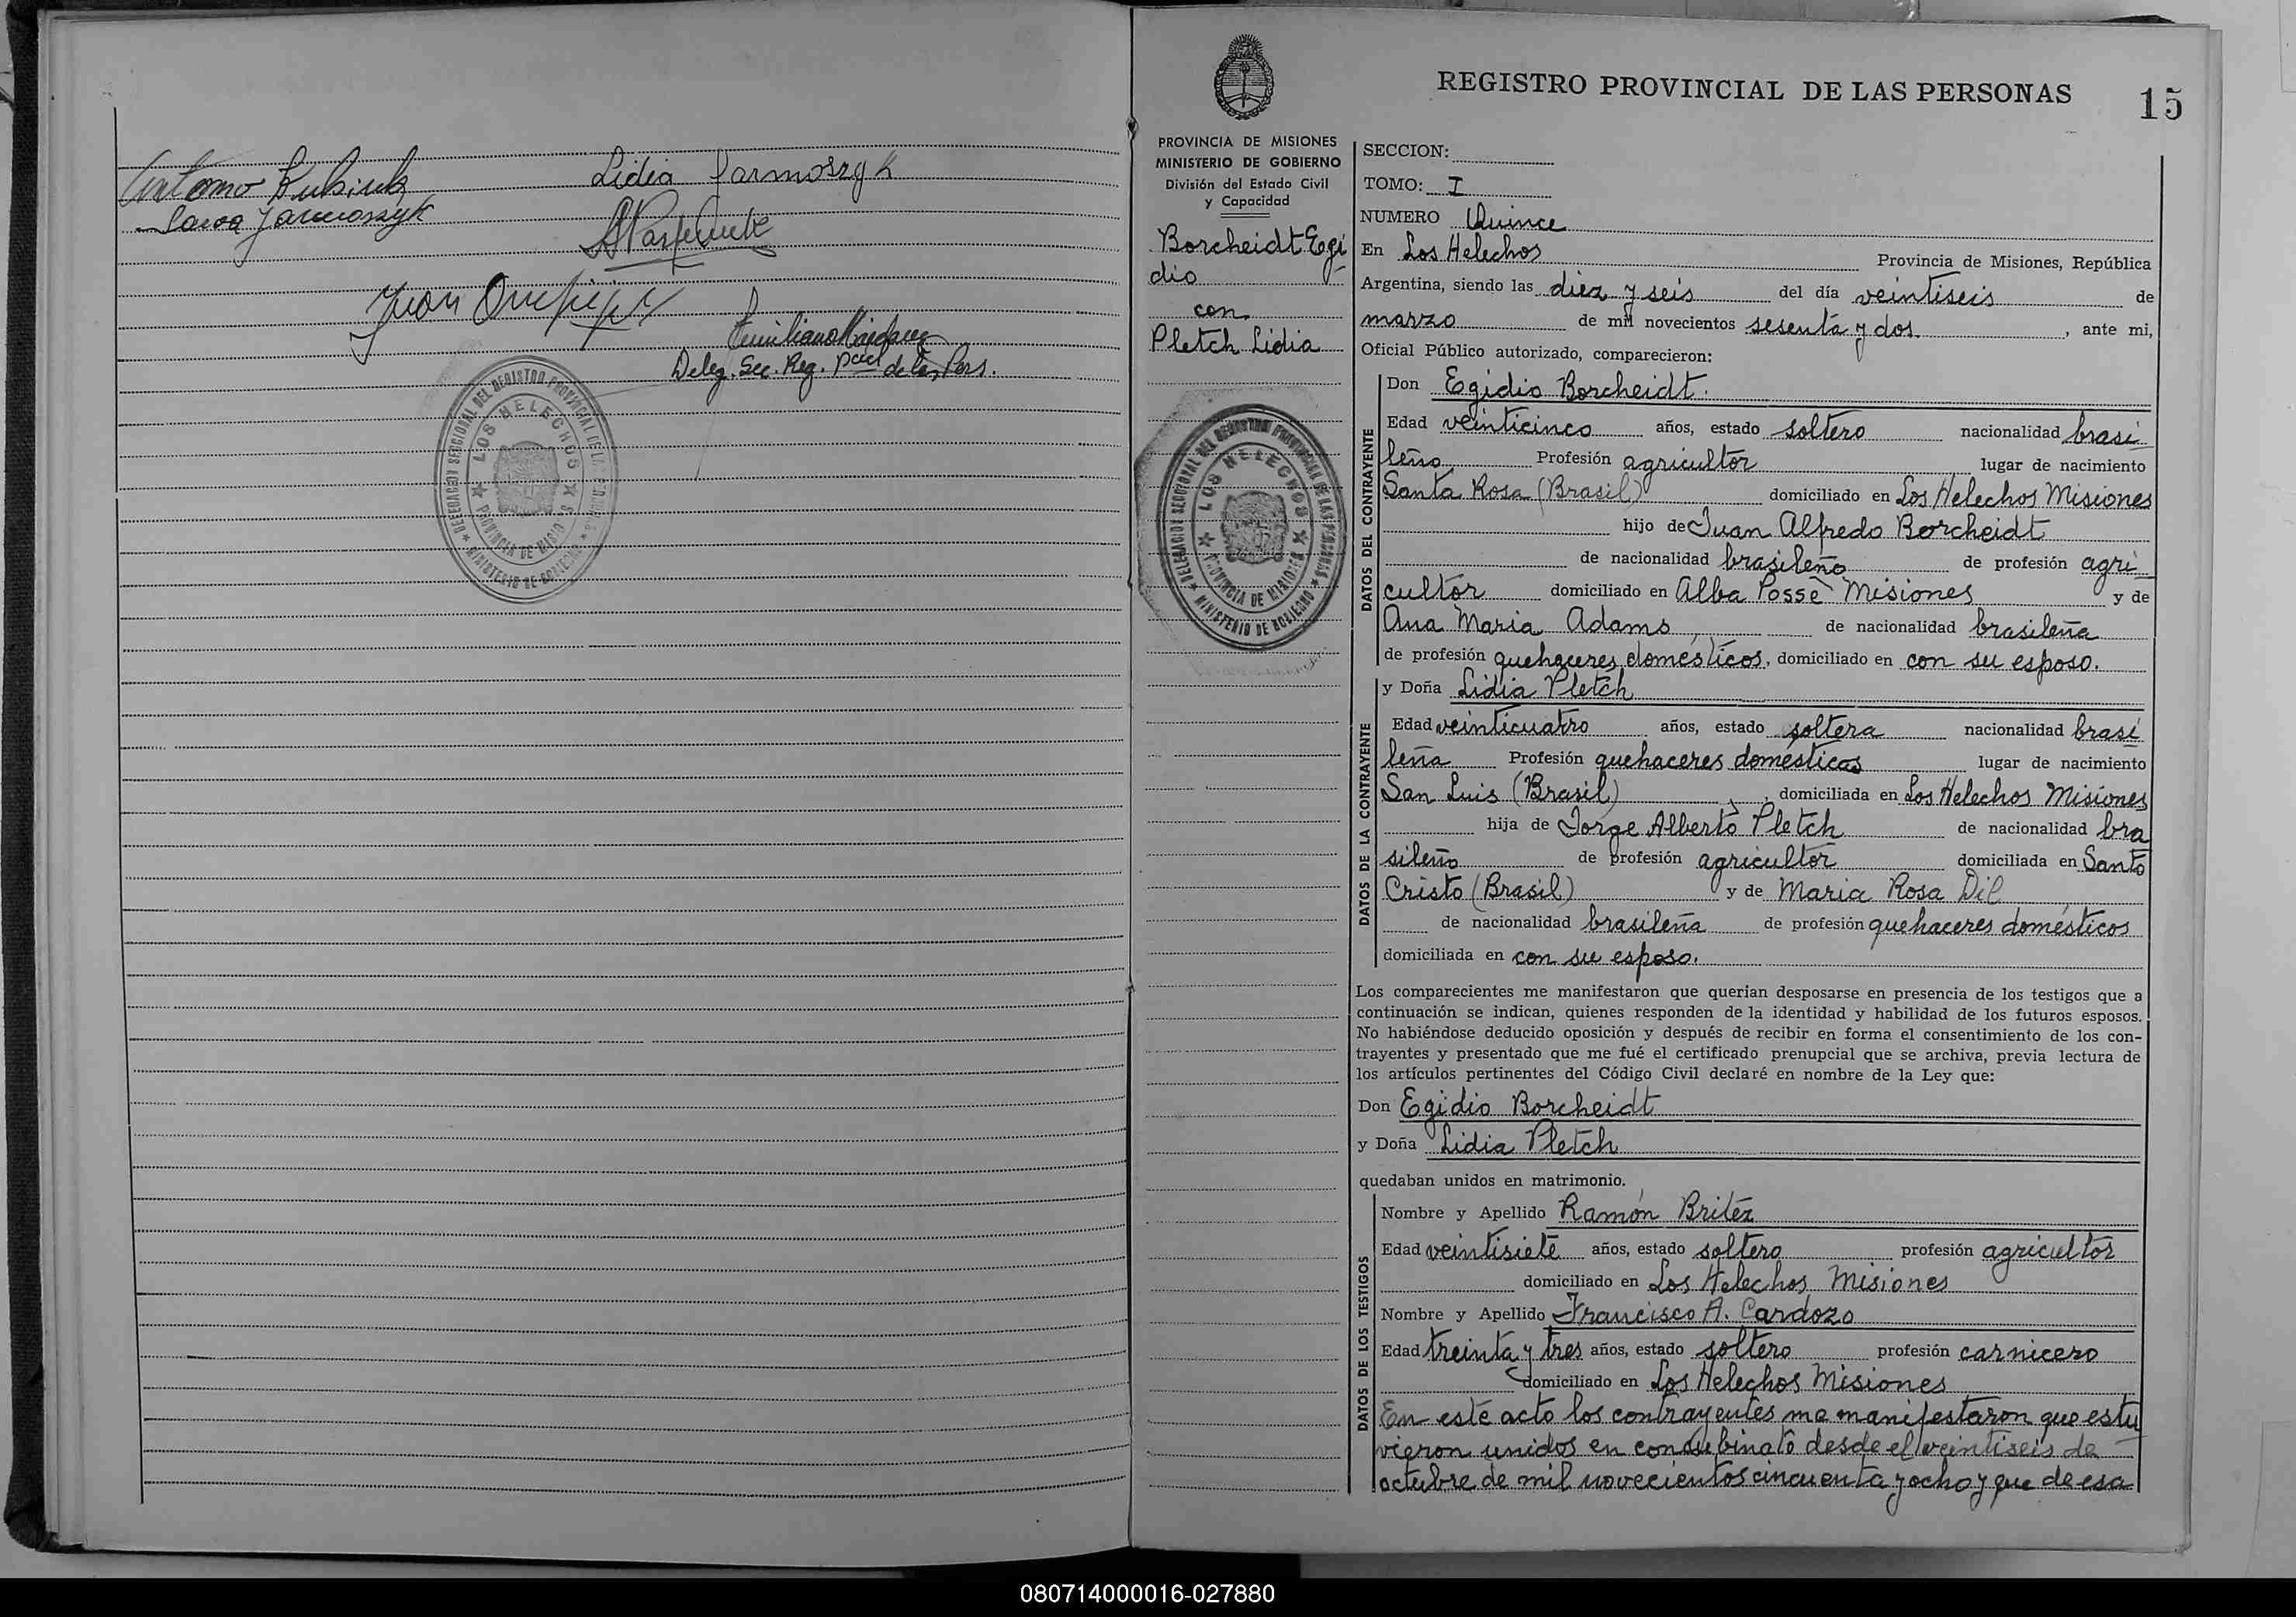 Antonio Kubiuk
Lidia Jarmoszyk
Jarmoszyk
Juan
Emiliano
Deleg. Sec. Reg. Pcial de las Pers.
DELEGACION SECCIONAL DEL REGISTRO PROVINCIAL DE LAS PERSONAS
LOS HELECHOS
PROVINCIA DE MISIONES
MINISTERIO DE GOBIERNO
REGISTRO PROVINCIAL DE LAS PERSONAS
15
PROVINCIA DE MISIONES
MINISTERIO DE GOBIERNO
División del Estado Civil
y Capacidad
Borcheidt Egi
dio
con
Pletch Lidia
DELEGACION SECCIONAL DEL REGISTRO PROVINCIAL DE LAS PERSONAS
LOS HELECHOS
PROVINCIA DE MISIONES
MINISTERIO DE GOBIERNO
SECCION:
TOMO: I
NUMERO Quince
En Los Helechos Provincia de Misiones, República
Argentina, siendo las diez y seis del día veintiseis de
marzo de mil novecientos sesenta y dos, ante mi,
Oficial Público autorizado, comparecieron:
DATOS DEL CONTRAYENTE
Don Egidio Borcheidt.
Edad veinticinco años, estado soltero nacionalidad brasi
leño Profesión agricultor lugar de nacimiento
Santa Rosa (Brasil) domiciliado en Los Helechos Misiones
hijo de Juan Alfredo Borcheidt
de nacionalidad brasileño de profesión agri
cultor domiciliado en Alba Posse Misiones y de
Ana Maria Adams, de nacionalidad brasileña
de profesión quehaceres domésticos, domiciliado en con su esposo.
DATOS DE LA CONTRAYENTE
y Doña Lidia Pletch
Edad veinticuatro años, estado soltera nacionalidad brasi
leña Profesión quehaceres domésticos lugar de nacimiento
San Luis (Brasil), domiciliada en Los Helechos Misiones
hija de Jorge Alberto Pletch de nacionalidad bra
sileño de profesión agricultor domiciliada en Santo
Cristo (Brasil) y de Maria Rosa Dil
de nacionalidad brasileña de profesión quehaceres domésticos
domiciliada en con su esposo.
Los comparecientes me manifestaron que querian desposarse en presencia de los testigos que a
continuación se indican, quienes responden de la identidad y habilidad de los futuros esposos.
No habiéndose deducido oposición y después de recibir en forma el consentimiento de los con-
trayentes y presentado que me fué el certificado prenupcial que se archiva, previa lectura de
los artículos pertinentes del Código Civil declaré en nombre de la Ley que:
Don Egidio Borcheidt
y Doña Lidia Pletch
quedaban unidos en matrimonio.
DATOS DE LOS TESTIGOS
Nombre y Apellido Ramón Britez
Edad veintisiete años, estado soltero profesión agricultor
domiciliado en Los Helechos Misiones
Nombre y Apellido Francisco A. Cardozo
Edad treinta y tres años, estado soltero profesión carnicero
domiciliado en Los Helechos Misiones
En este acto los contrayentes me manifestaron que estu
vieron unidos en concubinato desde el veintiseis de
octubre de mil novecientos cincuenta y ocho y que de esa
080714000016-027880